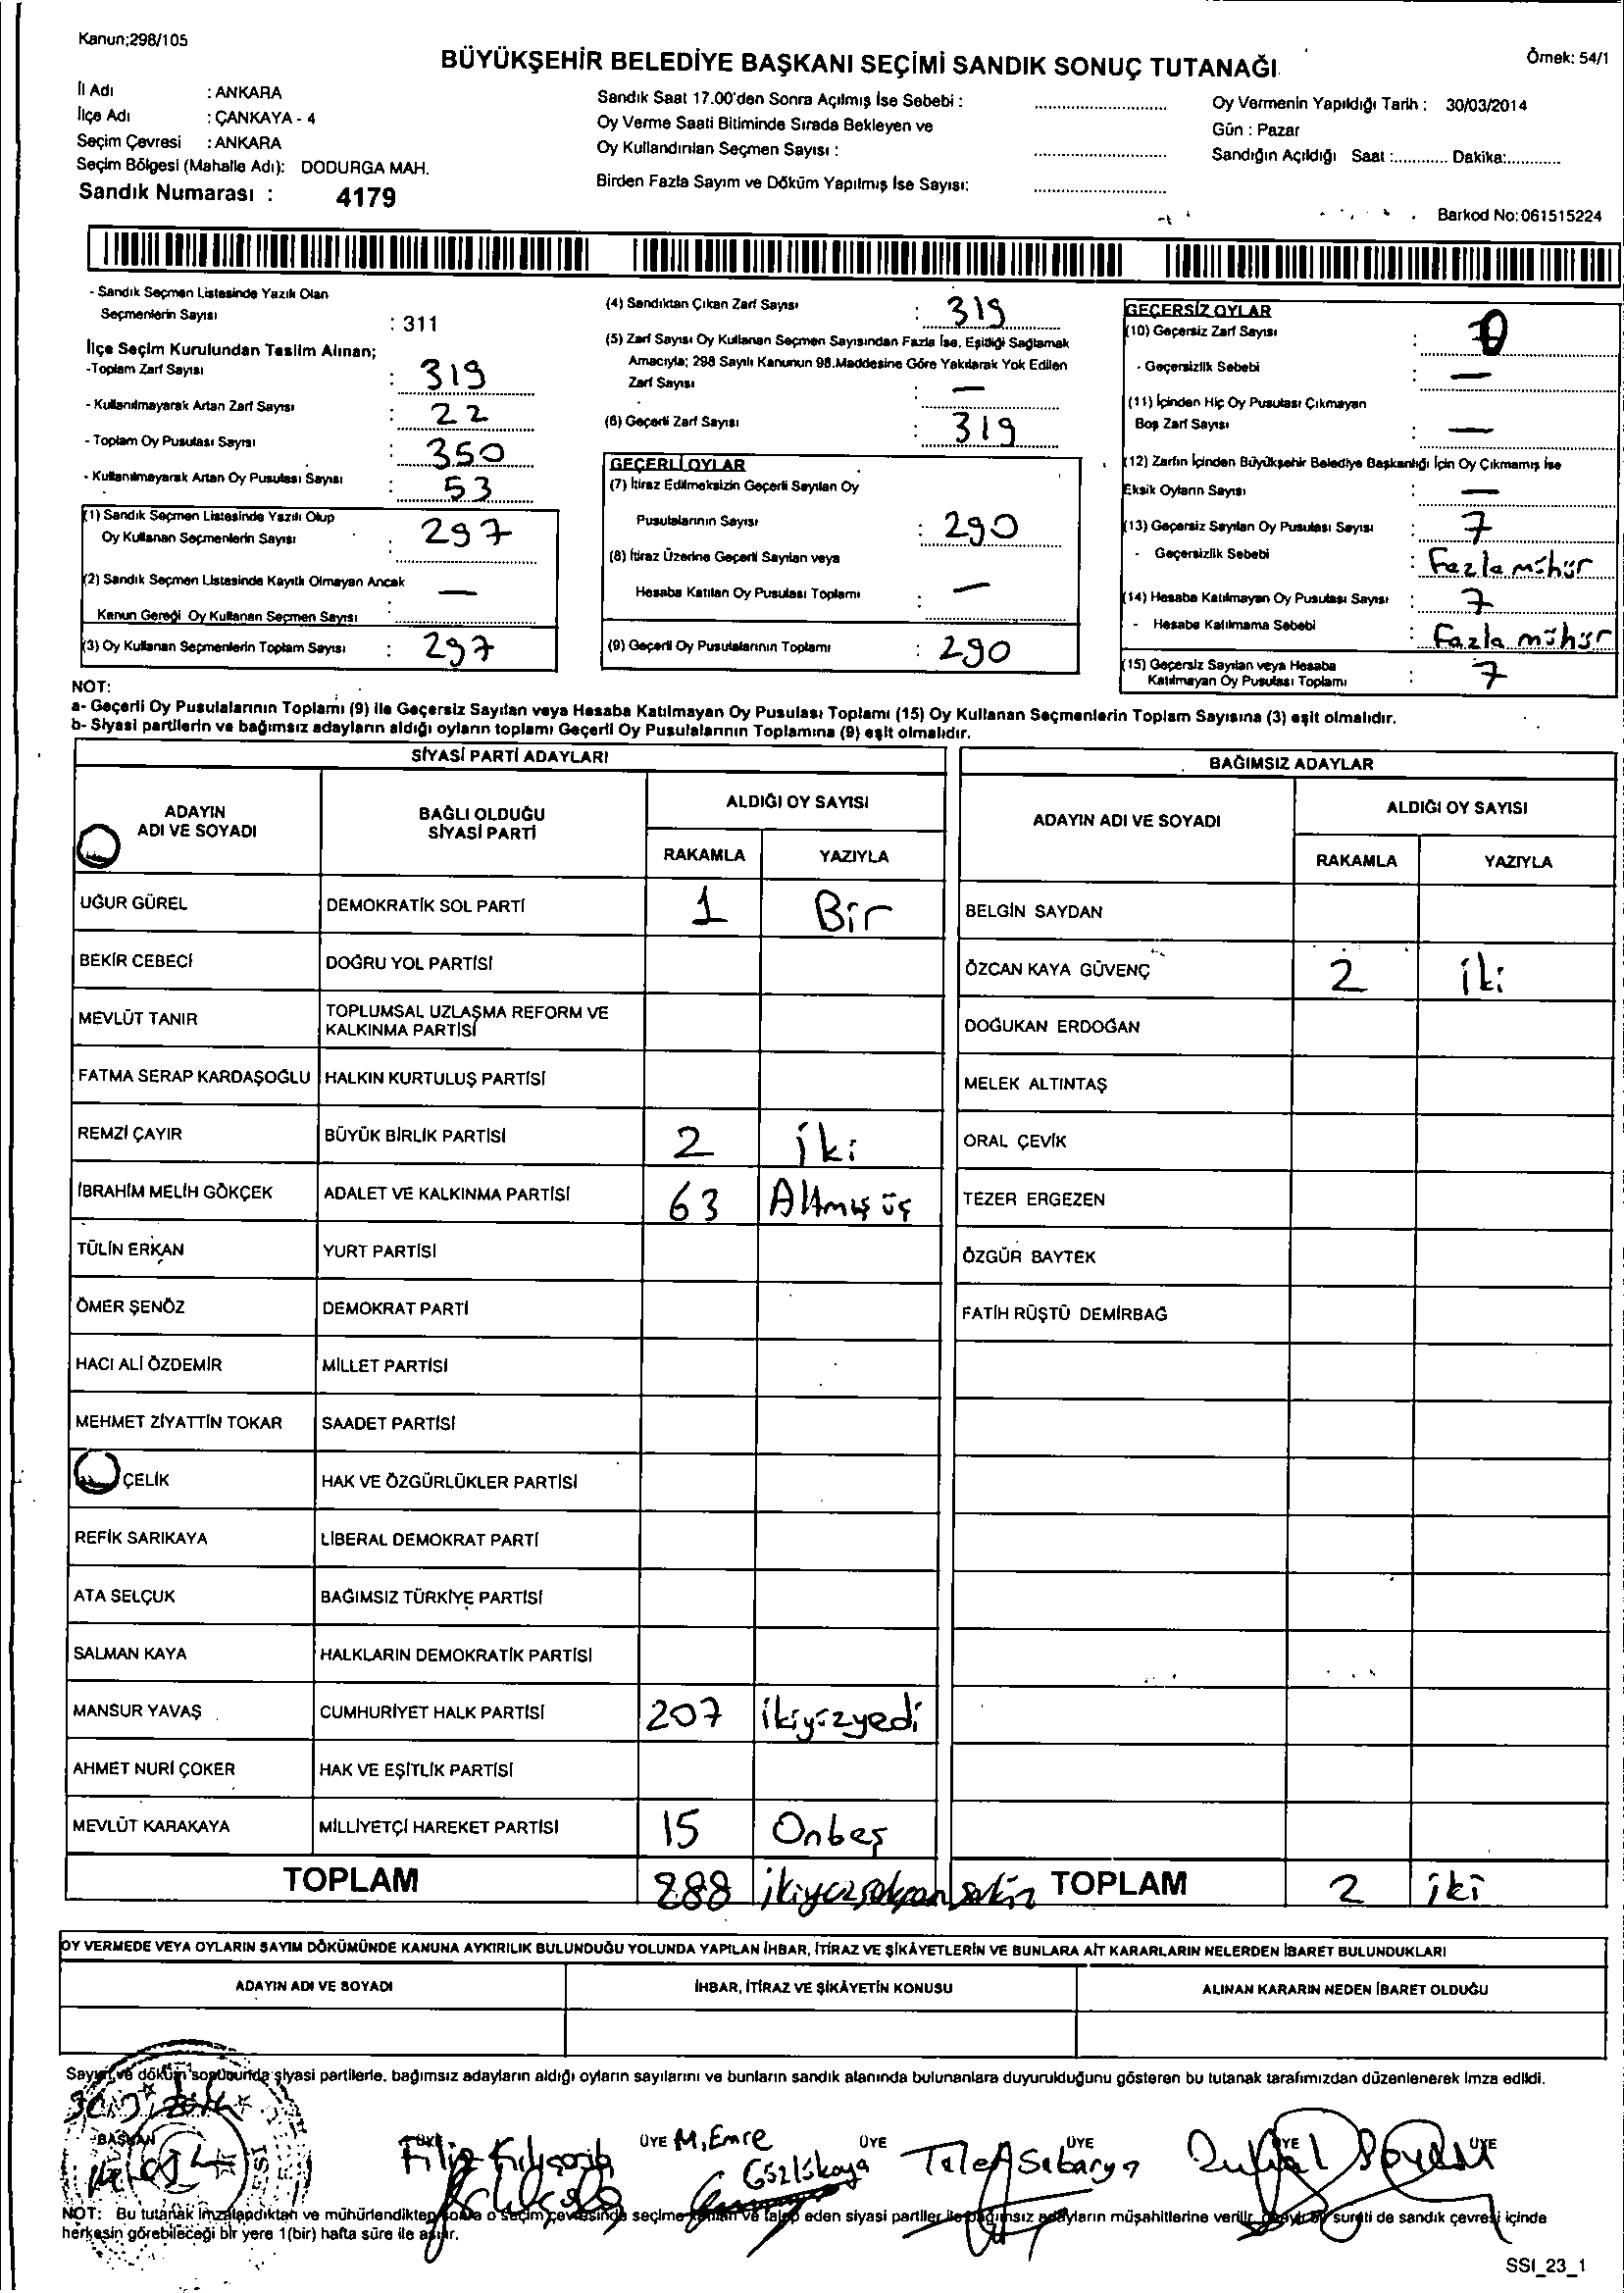 Kanun;298/105
BÜYÜKŞEHİR BELEDİYE BAŞKANI SEÇİMİ SANDIK SONUÇ TUTANAĞI
Örnek: 54/1
İl Adı : ANKARA
İlçe Adı : ÇANKAYA - 4
Seçim Çevresi : ANKARA
Seçim Bölgesi (Mahalle Adı): DODURGA MAH.
Sandık Numarası : 4179
Sandık Saat 17.00'den Sonra Açılmış İse Sebebi :
Oy Verme Saati Bitiminde Sırada Bekleyen ve
Oy Kullandırılan Seçmen Sayısı :
Birden Fazla Sayım ve Döküm Yapılmış İse Sayısı:
Oy Vermenin Yapıldığı Tarih : 30/03/2014
Gün : Pazar
Sandığın Açıldığı Saat :............ Dakika:............
Barkod No:061515224
- Sandık Seçmen Listesinde Yazılı Olan
Seçmenlerin Sayısı : 311
İlçe Seçim Kurulundan Teslim Alınan;
-Toplam Zarf Sayısı : 319
- Kullanılmayarak Artan Zarf Sayısı : 22
- Toplam Oy Pusulası Sayısı : 350
- Kullanılmayarak Artan Oy Pusulası Sayısı : 53
(1) Sandık Seçmen Listesinde Yazılı Olup
Oy Kullanan Seçmenlerin Sayısı : 297
(2) Sandık Seçmen Listesinde Kayıtlı Olmayan Ancak
Kanun Gereği Oy Kullanan Seçmen Sayısı : —
(3) Oy Kullanan Seçmenlerin Toplam Sayısı : 297
(4) Sandıktan Çıkan Zarf Sayısı : 319
(5) Zarf Sayısı Oy Kullanan Seçmen Sayısından Fazla İse, Eşitliği Sağlamak
Amacıyla; 298 Sayılı Kanunun 98.Maddesine Göre Yakılarak Yok Edilen
Zarf Sayısı : —
(6) Geçerli Zarf Sayısı : 319
GEÇERLİ OYLAR
(7) İtiraz Edilmeksizin Geçerli Sayılan Oy
Pusulalarının Sayısı : 290
(8) İtiraz Üzerine Geçerli Sayılan veya
Hesaba Katılan Oy Pusulası Toplamı : —
(9) Geçerli Oy Pusulalarının Toplamı : 290
GEÇERSİZ OYLAR
(10) Geçersiz Zarf Sayısı :
- Geçersizlik Sebebi : —
(11) İçinden Hiç Oy Pusulası Çıkmayan
Boş Zarf Sayısı : —
(12) Zarfın İçinden Büyükşehir Belediye Başkanlığı İçin Oy Çıkmamış İse
Eksik Oyların Sayısı : —
(13) Geçersiz Sayılan Oy Pusulası Sayısı : 7
- Geçersizlik Sebebi : Fazla mühür
(14) Hesaba Katılmayan Oy Pusulası Sayısı : 7
- Hesaba Katılmama Sebebi : Fazla mühür
(15) Geçersiz Sayılan veya Hesaba
Katılmayan Oy Pusulası Toplamı : 7
NOT:
a- Geçerli Oy Pusulalarının Toplamı (9) ile Geçersiz Sayılan veya Hesaba Katılmayan Oy Pusulası Toplamı (15) Oy Kullanan Seçmenlerin Toplam Sayısına (3) eşit olmalıdır.
b- Siyasi partilerin ve bağımsız adayların aldığı oyların toplamı Geçerli Oy Pusulalarının Toplamına (9) eşit olmalıdır.
SİYASİ PARTİ ADAYLARI
ADAYIN ADI VE SOYADI
BAĞLI OLDUĞU SİYASİ PARTİ
ALDIĞI OY SAYISI
RAKAMLA YAZIYLA
UĞUR GÜREL DEMOKRATİK SOL PARTİ 1 Bir
BEKİR CEBECİ DOĞRU YOL PARTİSİ
MEVLÜT TANIR TOPLUMSAL UZLAŞMA REFORM VE
KALKINMA PARTİSİ
FATMA SERAP KARDAŞOĞLU HALKIN KURTULUŞ PARTİSİ
REMZİ ÇAYIR BÜYÜK BİRLİK PARTİSİ 2 iki
İBRAHİM MELİH GÖKÇEK ADALET VE KALKINMA PARTİSİ 63 Altmış üç
TÜLİN ERKAN YURT PARTİSİ
ÖMER ŞENÖZ DEMOKRAT PARTİ
HACI ALİ ÖZDEMİR MİLLET PARTİSİ
MEHMET ZİYATTİN TOKAR SAADET PARTİSİ
ÇELİK HAK VE ÖZGÜRLÜKLER PARTİSİ
REFİK SARIKAYA LİBERAL DEMOKRAT PARTİ
ATA SELÇUK BAĞIMSIZ TÜRKİYE PARTİSİ
SALMAN KAYA HALKLARIN DEMOKRATİK PARTİSİ
MANSUR YAVAŞ CUMHURİYET HALK PARTİSİ 207 ikiyüzyedi
AHMET NURİ ÇOKER HAK VE EŞİTLİK PARTİSİ
MEVLÜT KARAKAYA MİLLİYETÇİ HAREKET PARTİSİ 15 Onbeş
TOPLAM 288 ikiyüzseksensekiz
BAĞIMSIZ ADAYLAR
ADAYIN ADI VE SOYADI
ALDIĞI OY SAYISI
RAKAMLA YAZIYLA
BELGİN SAYDAN
ÖZCAN KAYA GÜVENÇ 2 iki
DOĞUKAN ERDOĞAN
MELEK ALTINTAŞ
ORAL ÇEVİK
TEZER ERGEZEN
ÖZGÜR BAYTEK
FATİH RÜŞTÜ DEMİRBAĞ
TOPLAM 2 iki
OY VERMEDE VEYA OYLARIN SAYIM DÖKÜMÜNDE KANUNA AYKIRILIK BULUNDUĞU YOLUNDA YAPILAN İHBAR, İTİRAZ VE ŞİKÂYETLERİN VE BUNLARA AİT KARARLARIN NELERDEN İBARET BULUNDUKLARI
ADAYIN ADI VE SOYADI
İHBAR, İTİRAZ VE ŞİKÂYETİN KONUSU
ALINAN KARARIN NEDEN İBARET OLDUĞU
Sayım ve döküm sonucunda siyasi partilerle, bağımsız adayların aldığı oyların sayılarını ve bunların sandık alanında bulunanlara duyurulduğunu gösteren bu tutanak tarafımızdan düzenlenerek imza edildi.
BAŞKAN ÜYE ÜYE ÜYE ÜYE ÜYE ÜYE
Filiz M.Emre
NOT: Bu tutanak imzalandıktan ve mühürlendikten sonra o seçim çevresinde seçime katılan ve talep eden siyasi partiler ile bağımsız adayların müşahitlerine verilir. sureti de sandık çevresi içinde
herkesin görebileceği bir yere 1(bir) hafta süre ile asılır.
SSI_23_1